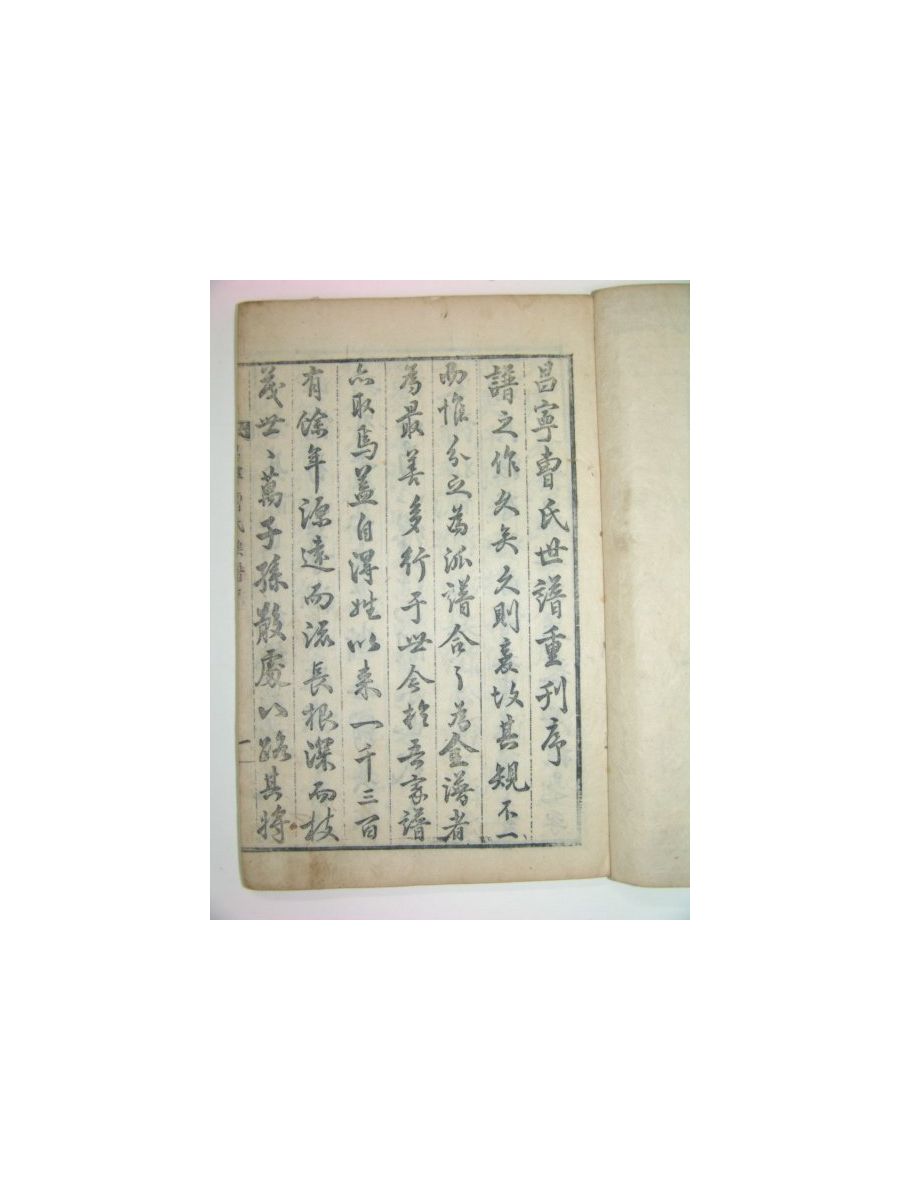 昌寧曺氏世譜重刊序
譜之作久矣久則裒故其規不一
而惟分之爲派譜合之爲全譜者
爲最善多行于世今於吾家譜
亦取焉盖自得姓以来一千三百
有餘年源遠而流長根深而枝
茂世〻萬子孫散處八路其將